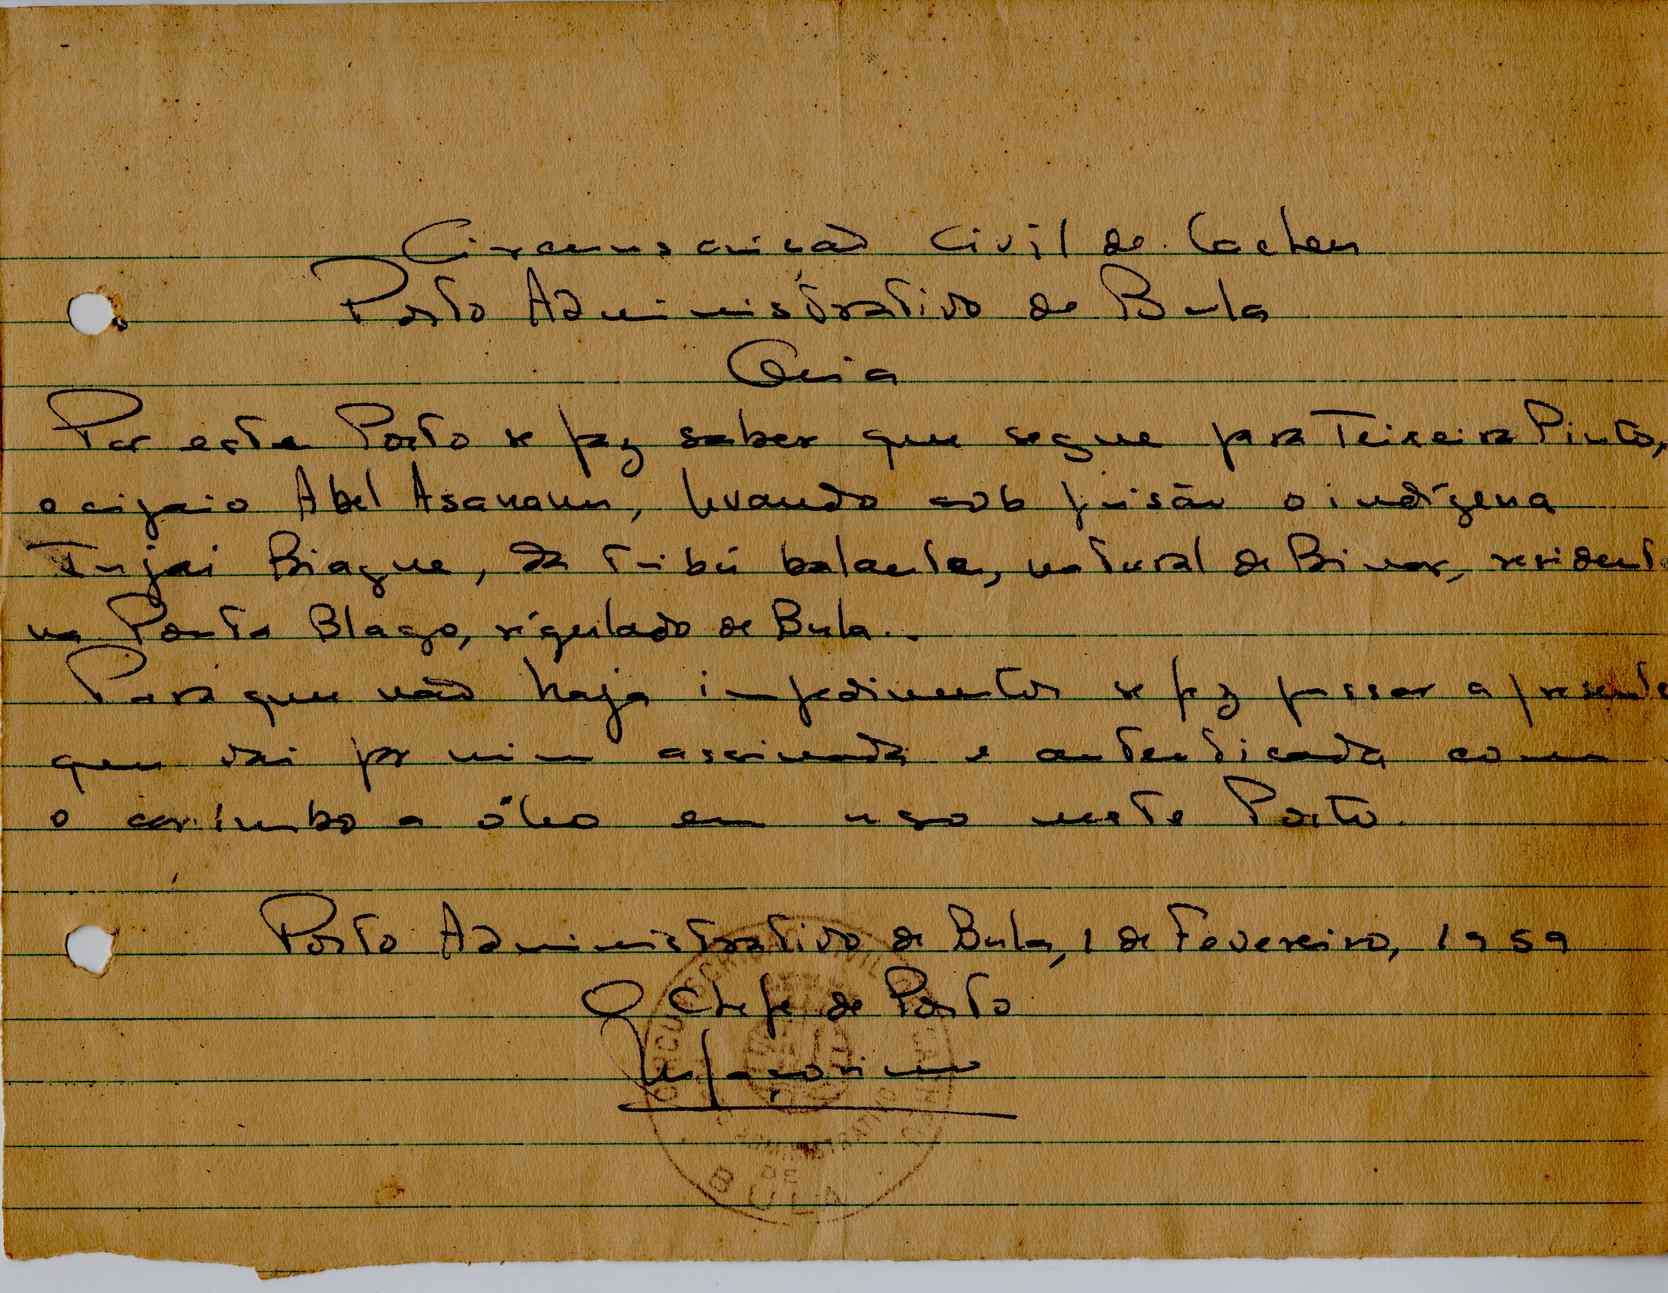 Circunscrição Civil de Cacheu
Posto Administrativo de Bula
Guia
Por este Posto se faz saber que segue para Teixeira Pinto,
o cipaio Abel Asanaun, levando sob prisão o indígena
Injai Biague, da tribú balanta, natural de Binar, residente
na Ponta Blago, régulado de Bula.
Para que não haja impedimentos se fez passar a presente
que vai por mim assinada e autenticada com
o carimbo a óleo em uso neste Posto.
Posto Administrativo de Bula, 1 de Fevereiro, 1959
O Chefe de Posto
CIRCUNSCRIÇÃO CIVIL
ADMINISTRATIVO
DE
BULA